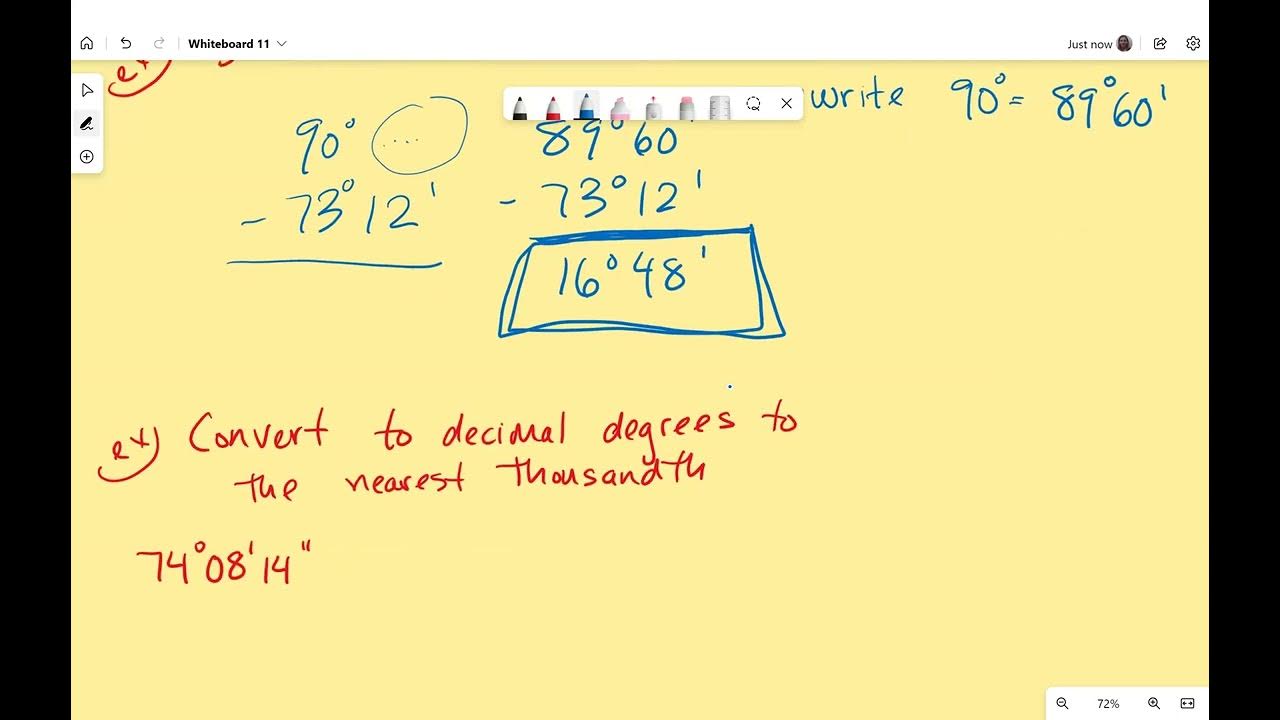 Whiteboard 11
Just now
ex)
write 90° = 89°60'
90° .... 89°60'
- 73°12' - 73°12'
16°48'
ex) Convert to decimal degrees to
the nearest thousandth
74°08'14"
72%